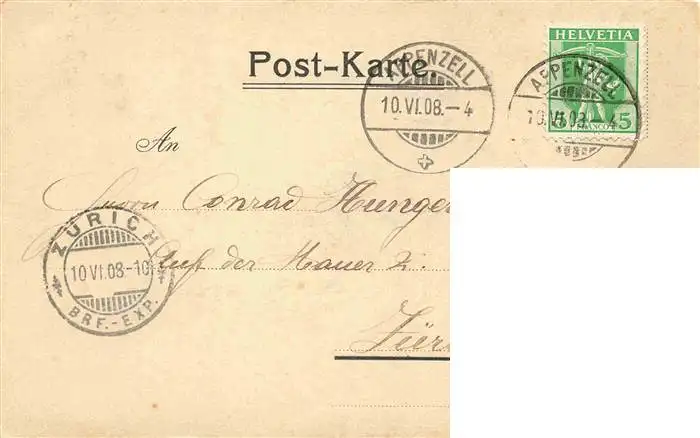 HELVETIA
5 FRANCO 5
Post-Karte.
APPENZELL
10.VI.08.–4
APPENZELL
10.VI.08.–4
An
Herrn Conrad Hunger
Auf der Mauer
ZÜRICH
10 VI.08–10
BRF.-EXP.